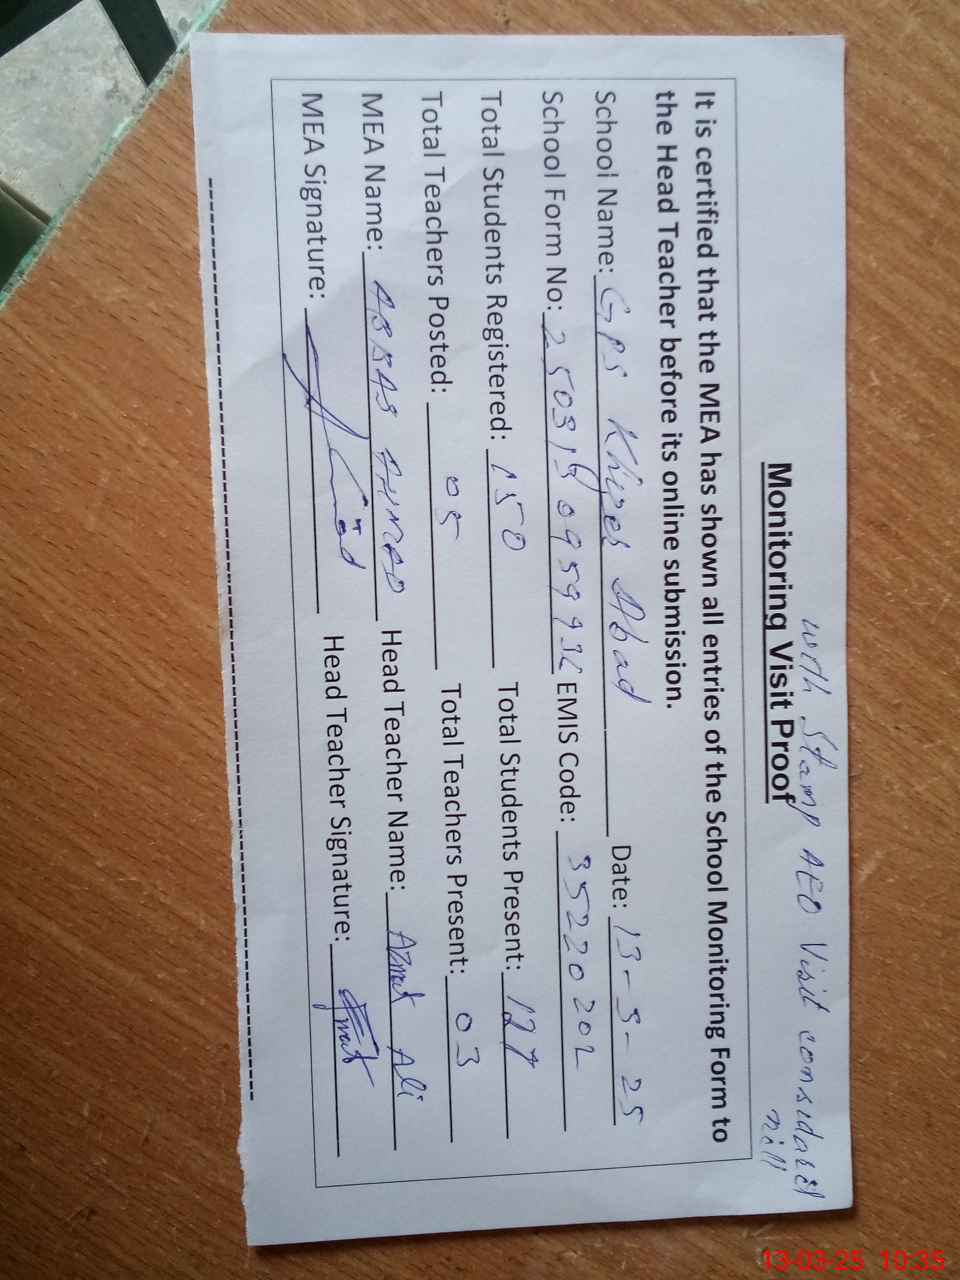 with Stamp AEO Visit considared
nill
Monitoring Visit Proof
It is certified that the MEA has shown all entries of the School Monitoring Form to
the Head Teacher before its online submission.
School Name: GPS Khizer Abad Date: 13-3-25
School Form No: EMIS Code: 35220202
Total Students Registered: 150 Total Students Present: 127
Total Teachers Posted: 05 Total Teachers Present: 03
MEA Name: ABBAS AHMAD Head Teacher Name: Azmat Ali
MEA Signature: Head Teacher Signature: Azmat
13-03-25 10:35